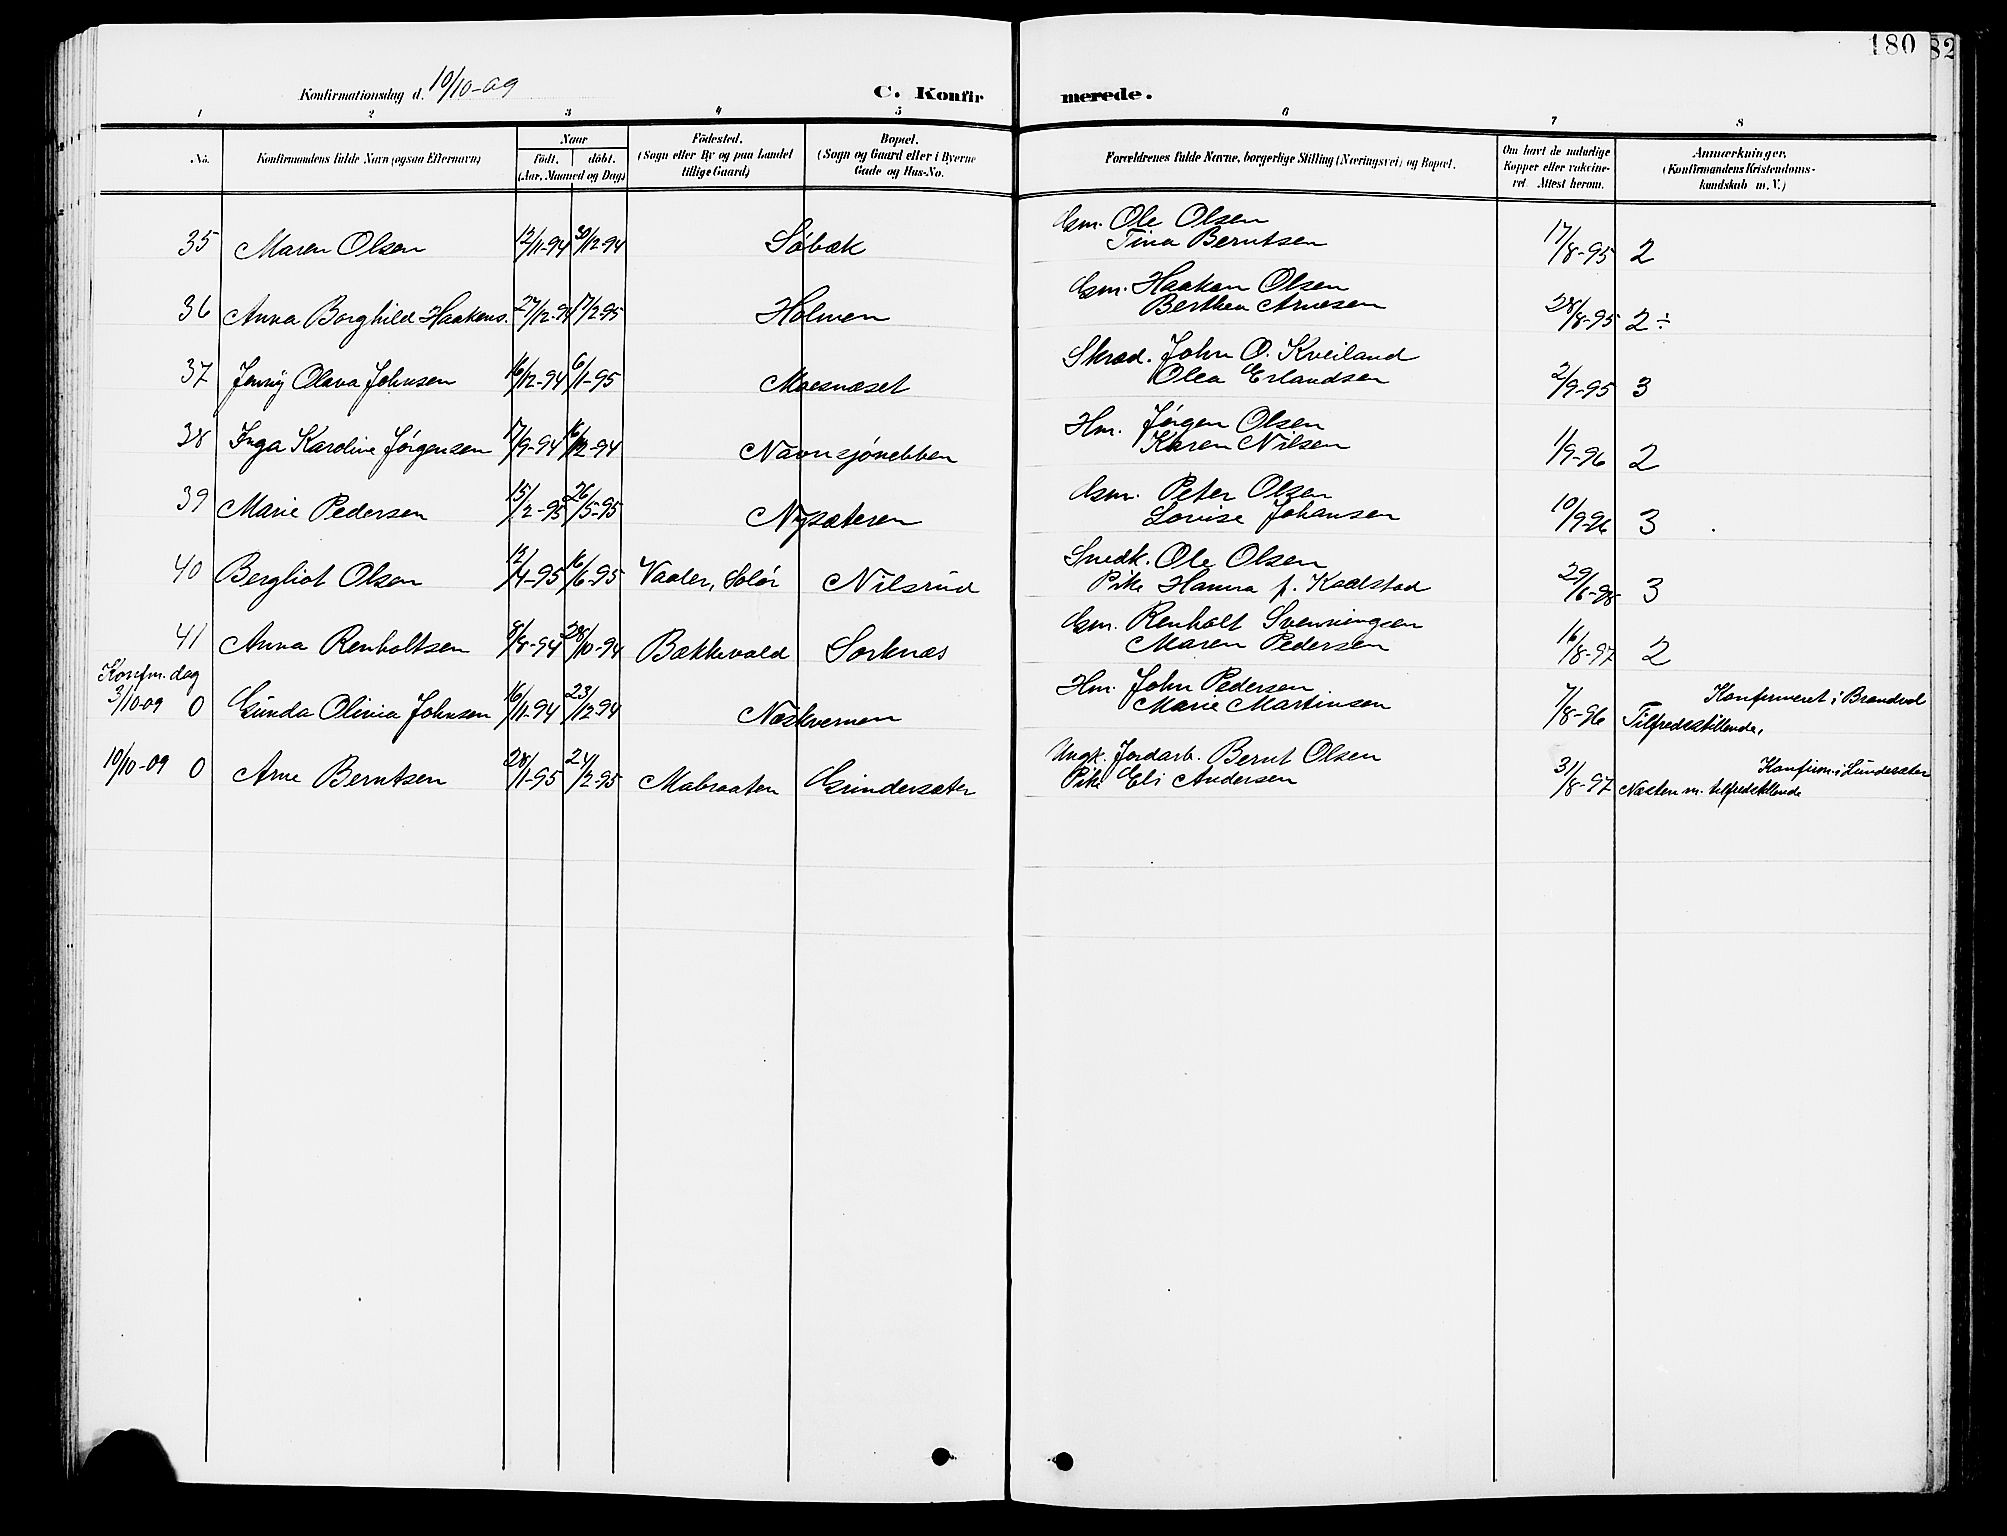 180
82
Konfirmationsdag d. 10/10-09
C. Konfirmerede.
1 2 3 4 5 6 7 8
No.
Konfirmandens fulde Navn (ogsaa Efternavn)
Naar
født. døbt.
(Aar, Maaned og Dag)
Fødested.
(Sogn eller By og paa Landet
tillige Gaard)
Bopæl.
(Sogn og Gaard eller i Byerne
Gade og Hus-No.
Forældrenes fulde Navne, borgerlige Stilling (Næringsvei) og Bopæl.
Om havt de naturlige
Kopper eller vakcine-
ret. Attest herom.
Anmærkninger.
(Konfirmandens Kristendoms-
kundskab m. V.)
35 Maren Olsen 12/11-94 30/12-94 Söbæk Gm. Ole Olsen 17/8-95 2
Tina Berntsen
36 Anna Borghild Haakens. 27/12-94 17/2-95 Holmen Gm. Haakon Olsen 28/8-95 2÷
Berthea Arnesen
37 Jenny Olava Johnsen 16/12-94 6/1-95 Moesnæset Skræd. John O. Kveiland 2/9-95 3
Olea Erlandsen
38 Inga Karoline Jörgensen 17/9-94 16/12-94 Navnsjönebben Hm. Jörgen Olsen 1/9-96 2
Karen Nilsen
39 Marie Pedersen 15/2-95 26/5-95 Nysæteren Gm. Peter Olsen 10/9-96 3
Lovise Johansen
40 Bergliot Olsen 12/4-95 16/6-95 Vaaler, Solör Nilsrud Snedk. Ole Olsen 29/6-98 3
Pike Hanna f. Kadlstad
41 Anna Renholtsen 8/8-94 28/10-94 Bækkevold Sorknæs Gm. Renholt Svenningsen 16/8-97 2
Maren Pedersen
Konfm. dag
3/10-09 0 Gunda Olivia Johnsen 16/11-94 23/12-94 Næskvernen Hm. John Pedersen 7/8-96 Konfirmeret i Brandvol
Marie Martinsen Tilfredsstillende,
10/10-09 0 Arne Berntsen 28/1-95 24/2-95 Mabraaten Grindersæter Ungk. Jordarb. Bernt Olsen 31/8-97 Konfirm. i Lundersæter
Pike Eli Andersen Næsten m. tilfredstillende